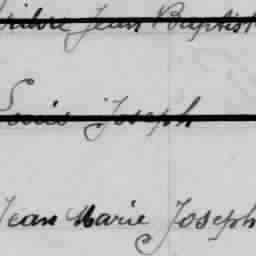 Jean Baptist
Louis Joseph
Jean Marie Joseph